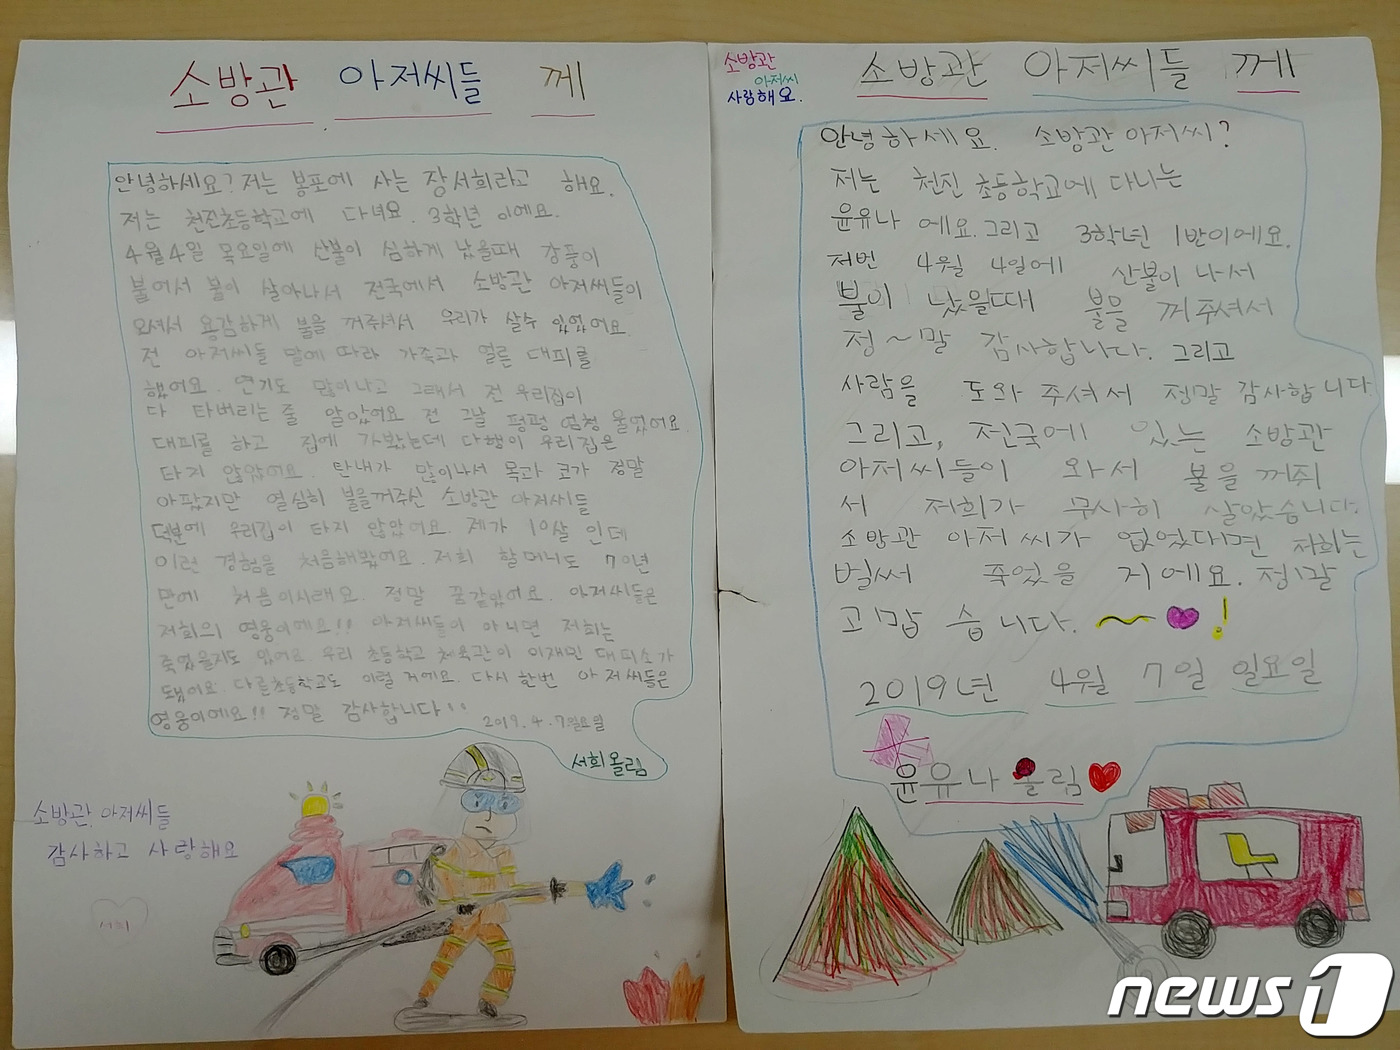 소방관 아저씨들 께
안녕하세요? 저는 봉포에 사는 장서희라고 해요.
저는 천진초등학교에 다녀요. 3학년 이에요.
4월4일 목요일에 산불이 심하게 났을때 강풍이
불어서 불이 살아나서 전국에서 소방관 아저씨들이
오셔서 용감하게 불을 꺼주셔서 우리가 살수 있었어요.
전 아저씨들 말에 따라 가족과 얼른 대피를
했어요. 연기도 많이나고 그래서 전 우리집이
다 타버리는줄 알았어요 전 그날 펑펑 엄청 울었어요.
대피를 하고 집에 가봤는데 다행이 우리집은
타지 않았어요. 탄내가 많이나서 목과 코가 정말
아팠지만 열심히 불을꺼주신 소방관 아저씨들
덕분에 우리집이 타지 않았어요. 제가 10살 인데
이런 경험을 처음해봤어요. 저희 할머니도 70년
만에 처음이시래요. 정말 꿈같았어요. 아저씨들은
저희의 영웅이예요!! 아저씨들이 아니면 저희는
죽었을지도 있어요. 우리 초등학교 체육관이 이재민 대피소가
됐어요. 다른초등학교도 이럴 거예요. 다시 한번 아저씨들은
영웅이예요!! 정말 감사합니다!!
2019.4.7일요일
서희올림
소방관 아저씨들
감사하고 사랑해요
서희
소방관
아저씨
사랑해요.
소방관 아저씨들 께
안녕하세요. 소방관 아저씨?
저는 천진 초등학교에 다니는
윤유나 에요. 그리고 3학년 1반이에요.
저번 4월 4일에 산불이 나서
불이 났을때 불을 꺼주셔서
정~말 감사합니다. 그리고
사람을 도와주셔서 정말 감사합니다
그리고, 전국에 있는 소방관
아저씨들이 와서 불을 꺼줘
서 저희가 무사히 살았습니다.
소방관 아저씨가 없었다면 저희는
벌써 죽었을 거에요. 정말
고맙습니다. ~ !
2019년 4월 7일 일요일
윤유나 올림
news1